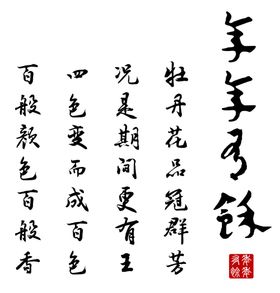 年年有餘
牡丹花品冠群芳
况是期间更有王
四色变而成百色
百般颜色百般香
年年有餘